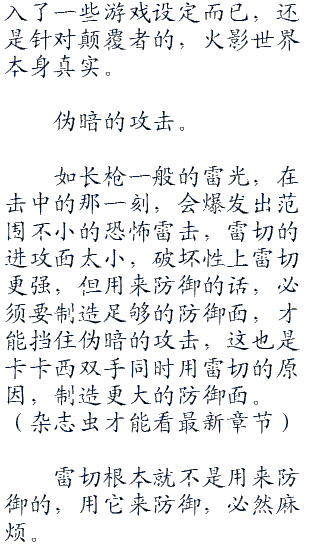 入了一些游戏设定而已，还
是针对颠覆者的，火影世界
本身真实。
伪暗的攻击。
如长枪一般的雷光，在
击中的那一刻，会爆发出范
围不小的恐怖雷击，雷切的
进攻面太小，破坏性上雷切
更强，但用来防御的话，必
须要制造足够的防御面，才
能挡住伪暗的攻击，这也是
卡卡西双手同时用雷切的原
因，制造更大的防御面。
（杂志虫才能看最新章节）
雷切根本就不是用来防
御的，用它来防御，必然麻
烦。